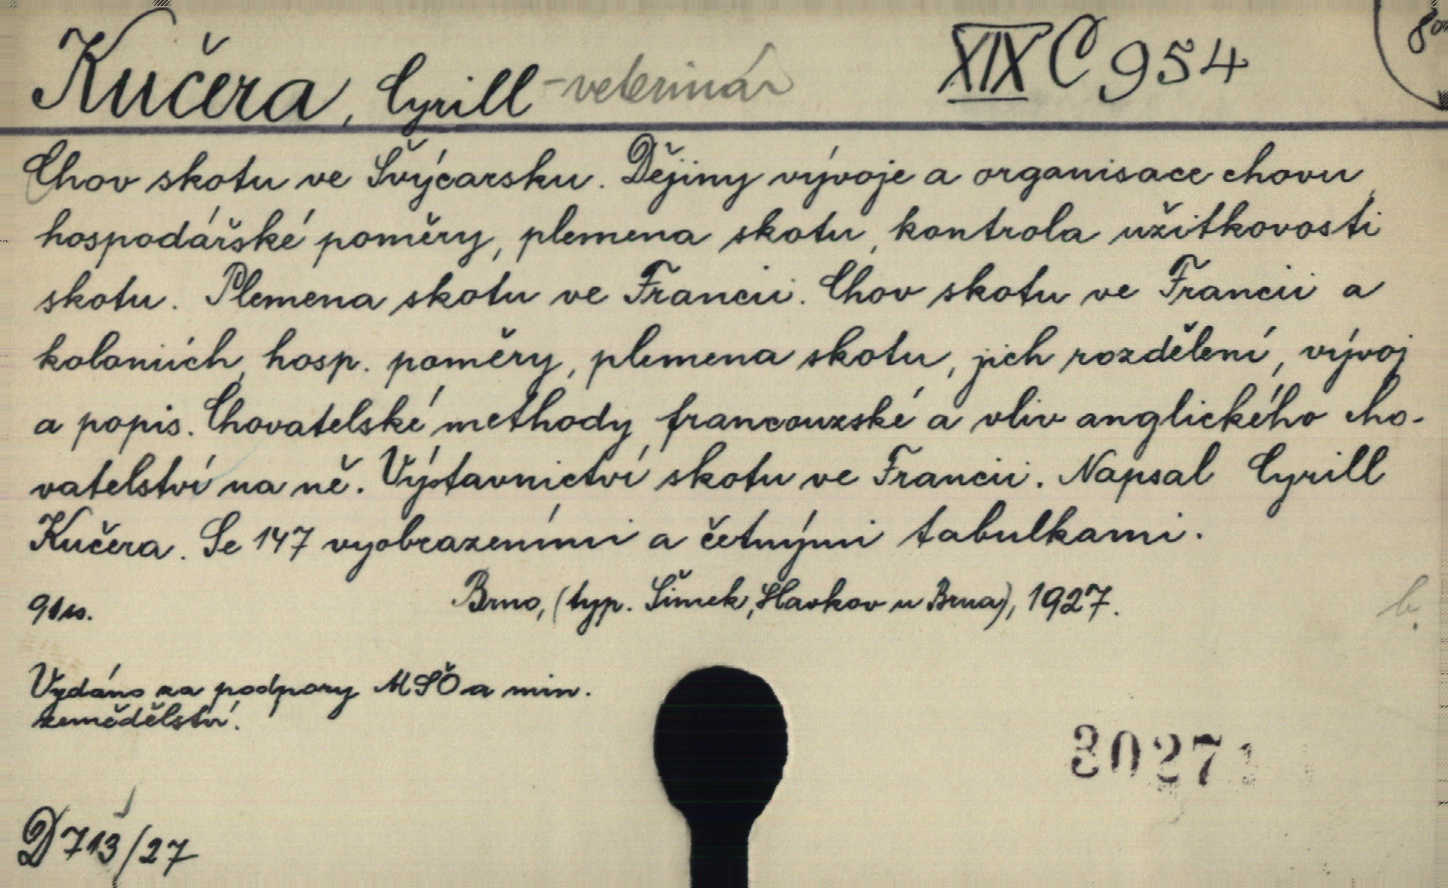 Kučera, Cyrill - veterinár XIX C 954
Chov skotu ve Švýcarsku. Dějiny vývoje a organisace chovu,
hospodářské poměry, plemena skotu, kontrola užitkovosti
skotu. Plemena skotu ve Francii. Chov skotu ve Francii a
koloniích, hosp. poměry, plemena skotu, jich rozdělení, vývoj
a popis. Chovatelské methody francouzské a vliv anglického cho-
vatelství na ně. Výstavnictví skotu ve Francii. Napsal Cyrill
Kučera. Se 147 vyobrazeními a četnými tabulkami.
Brno, (typ. Šimek, Slavkov u Brna), 1927.
Vydáno za podpory MŠO a min.
zemědělství.
30271
D 713/27